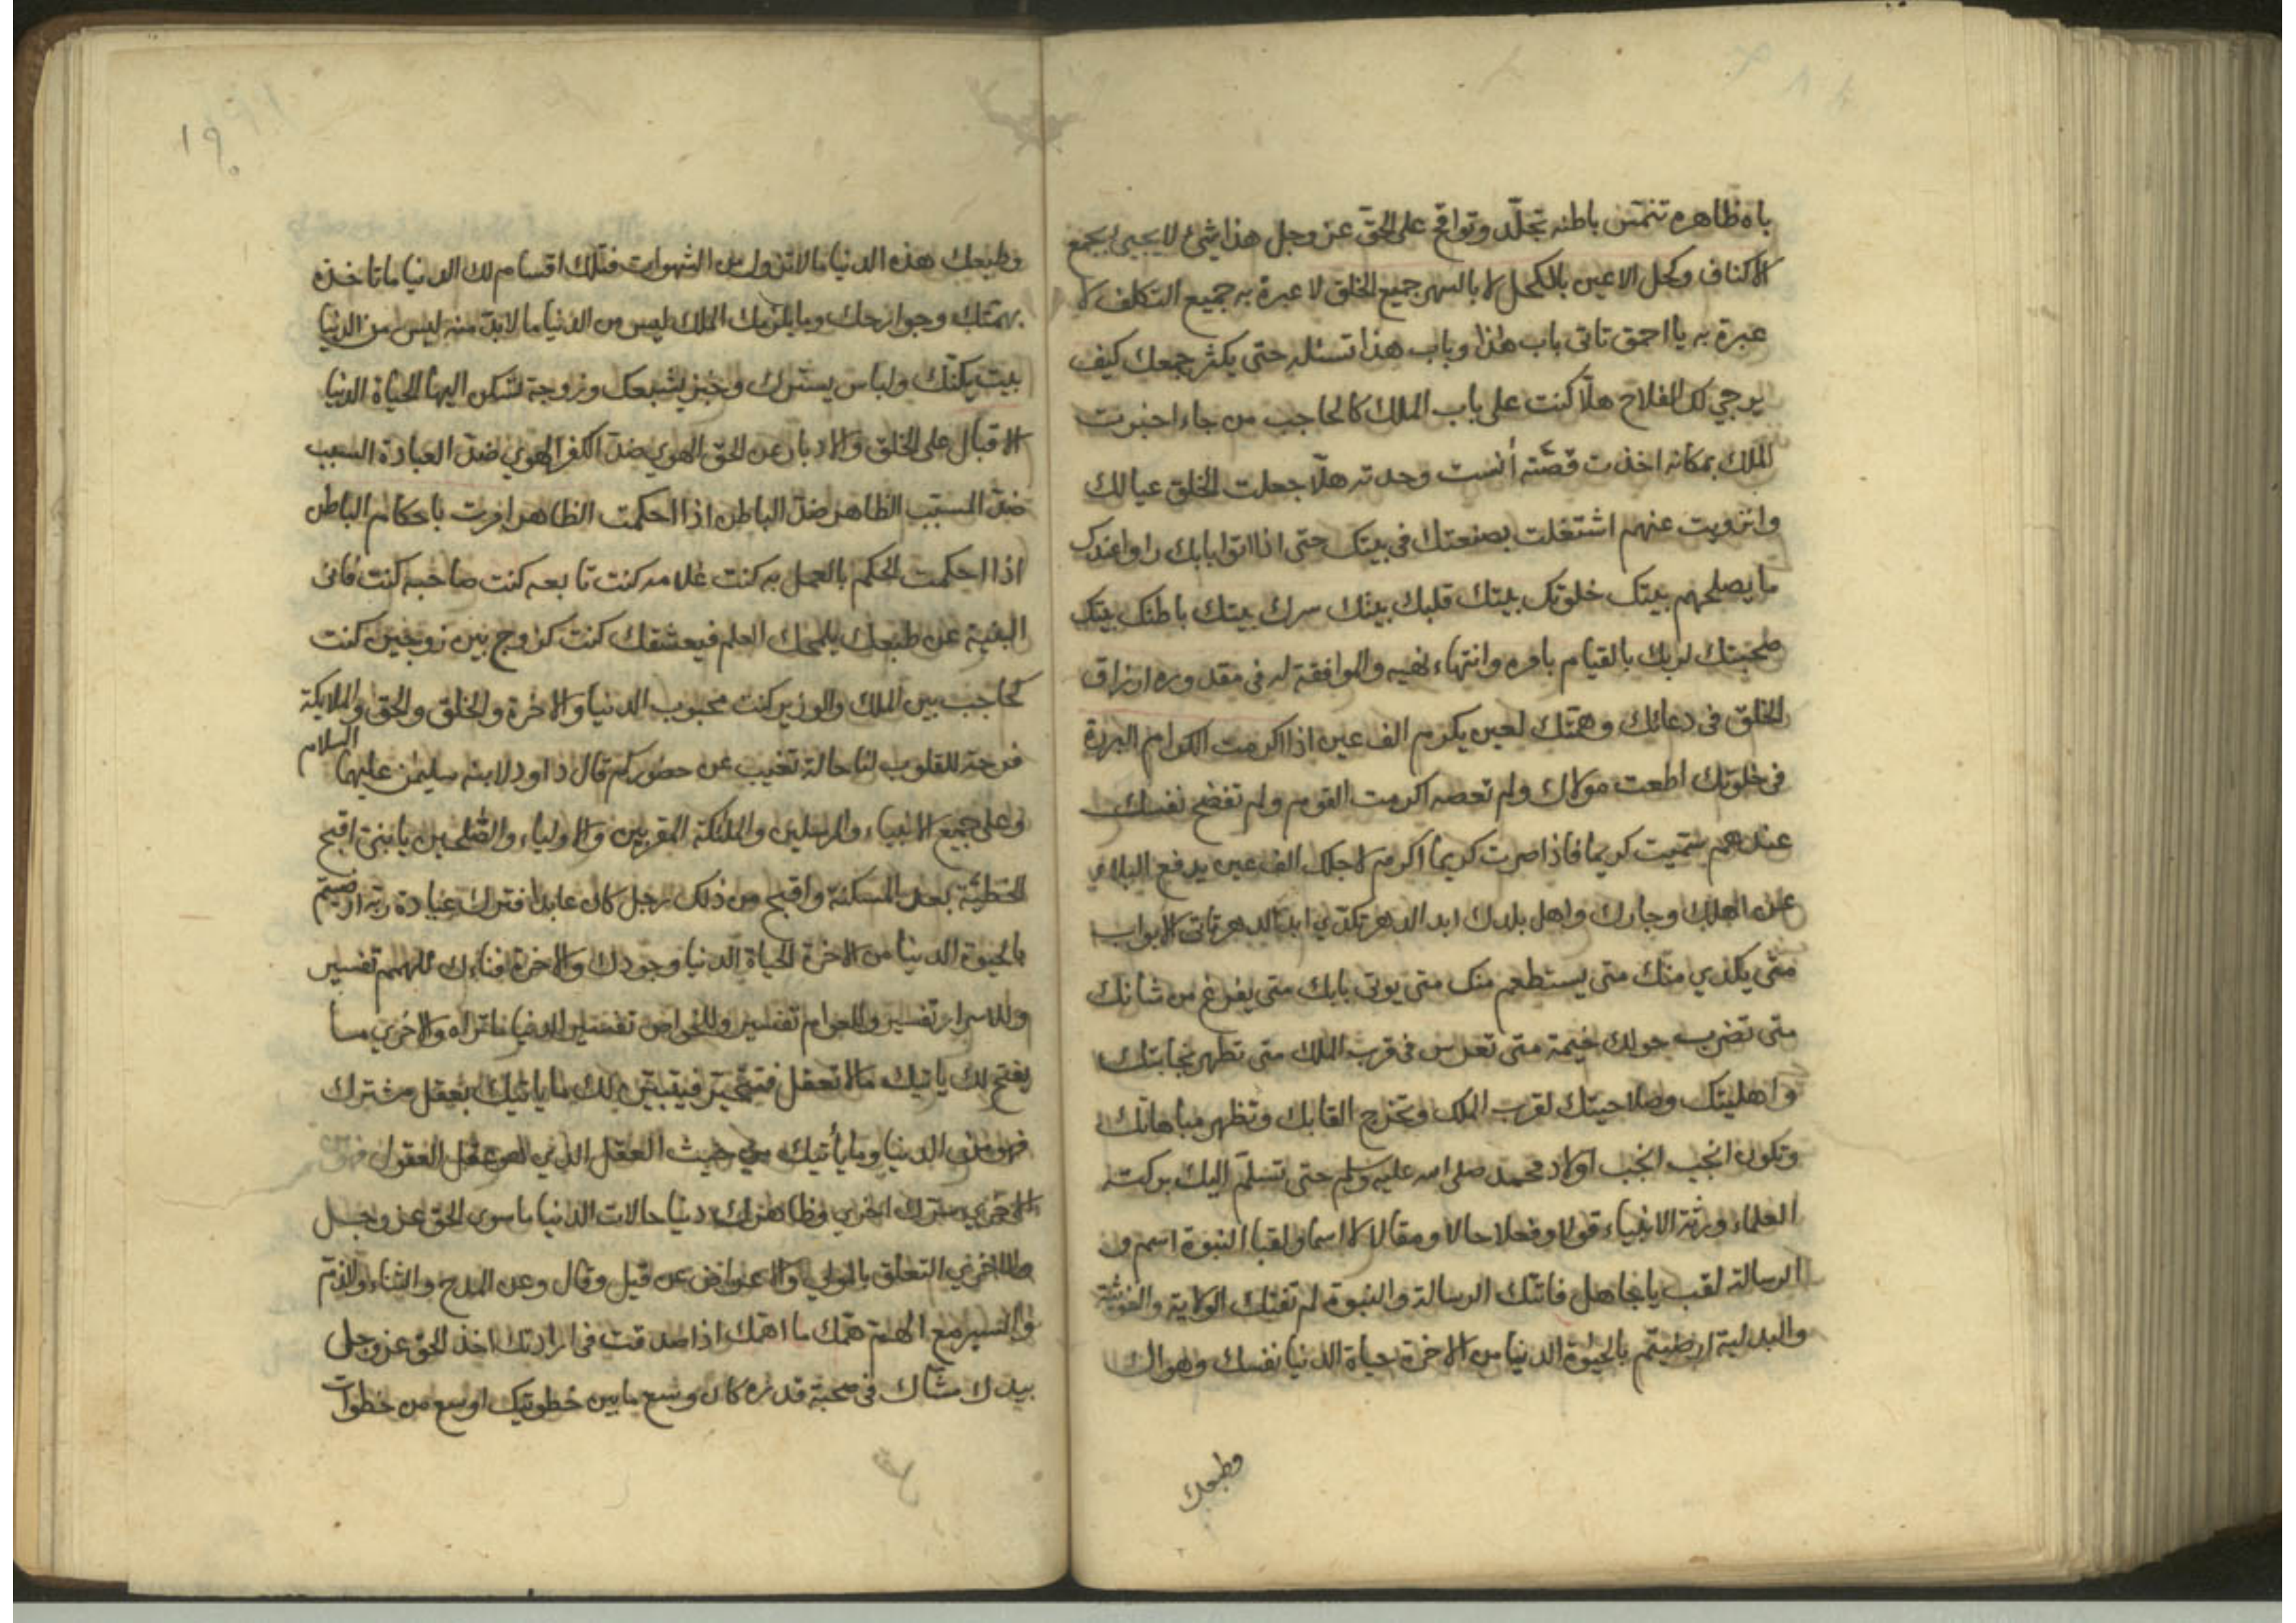 باه ظاهره تنمّس باطنه تجلّد وتواقح على الحقّ عز وجل هذا شئ لا يجيئ بجمع
الاكتاف وكحل الاعين بالكحل لا بالسهر جميع الخلق لا عبرة به جميع التكلف لا
عبرة به يا احمق تاتى باب هذا وباب هذا تسئله حتى يكثر جمعك كيف
يرجي لك الفلاح هلّا كنت على باب الملك كالحاجب من جاء اخبرت
الملك بمكانه اخذت قصّته أنست وحدته هلّا جعلت الخلق عيالك
وانزويت عنهم اشتغلت بصنعتك فى بيتك حتى اذا اتوا بابك راوا عندك
ما يصلحهم بيتك خلوتك بيتك قلبك بيتك سرك بيتك باطنك بيتك
صحبتك لربك بالقيام بامره وانتهاء نهيه والموافقة له فى مقدوره ارزاق
الخلق فى دعائك وهمّتك لعين يكرم الف عين اذا اكرمت الكرام البررة
فى خلوتك اطعت مولاك ولم تعصه اكرمت القوم ولم تفضح نفسك
عندهم سمّيت كريما فاذا صرت كريما اكرم لاجلك الف عين يدفع البلاء
عن اهلك وجارك واهل بلدك ابد الدهر تكدّي ابد الدهر تاتى الابواب
متى يكدي منك متى يستطعم منك متى يوتى بابك متى يفرغ من شانك
متى تضرب حولك خيمة متى تعرس فى قرب الملك متى تظهر نجابتك
واهليتك وصلاحيتك لقرب الملك وتخرج القابك وتظهر مباهاتك
وتكون انجب انجب اولاد محمد صلى الله عليه وسلم حتى تسلّم اليك بركته
العلماء ورثة الانبياء قولا وفعلا حالا ومقالا لا اسما ولقبا النبوة اسم و
الرسالة لقب يا جاهل فاتتك الرسالة والنبوة لم تفتك الولاية والغوثية
والبدلية ارضيتم بالحيوة الدنيا من الاخرة حياة الدنيا نفسك وهواك
وطبعك
١٩٠
وطبعك هذه الدنيا ما لا تزول من الشهوات فتلك اقسام لك الدنيا ما تاخذه
بهمتك وجوارحك وما يلزمك الملك ليس من الدنيا ما لا بدّ منه ليس من الدنيا
بيت يكنّك ولباس يسترك وخبز يشبعك وزوجة تسكن اليها الحياة الدنيا
الاقبال على الخلق والادبار عن الحق الهوي ضد الكفر الهوي ضد العبادة السبب
ضدّ المسبّب الظاهر ضدّ الباطن اذا احكمت الظاهر امرت باحكام الباطن
اذا احكمت الحكم بالعمل به كنت غلامه كنت تابعه كنت صاحبه كنت فانى
البقية عن طبعك يلمحك العلم فيعشقك كنت كزوج بين زوجين كنت
كحاجب بين الملك والوزير كنت محبوب الدنيا والاخرة والخلق والحق والملايكة
فرحة للقلوب لنا حالة تغيب عن حضوركم قال داود لابنه سليمن عليهما السلام
وعلى جميع الانبياء والمرسلين والملئكة المقربين والاولياء والصّلحين يا بنىّ اقبح
الخطيئة بعد المسكنة واقبح من ذلك رجل كان عابدا فترك عبادة ربه ارضيتم
بالحيوة الدنيا من الاخرة الحياة الدنيا وجودك والاخرة فناءك للهمم تفسير
وللاسرار تفسير وللعوام تفسير وللخواص تفسير الدنيا ما تراه والاخري ما
يفتح لك ياتيك ما لا تعقل فتتحيّر فيتبيّن لك ما ياتيك بعقل مشترك
فهو من الدنيا وما يأتيك من حيث العقل الذي هو عقل العقول فهو من
الاخري سرّك اخري وظاهرك دنيا حالات الدنيا ما سوي الحق عز وجل
والاخري التعلق بالمولي والاعراض عن قيل وقال وعن المدح والثناء والذمّ
والسير مع الهمّ همّك ما اهمّك اذا صدقت فى ارادتك اخذ الحق عز وجل
بيدك مشّاك فى صحبة قدره كان وسع ما بين خطوتيك اوسع من خطوات